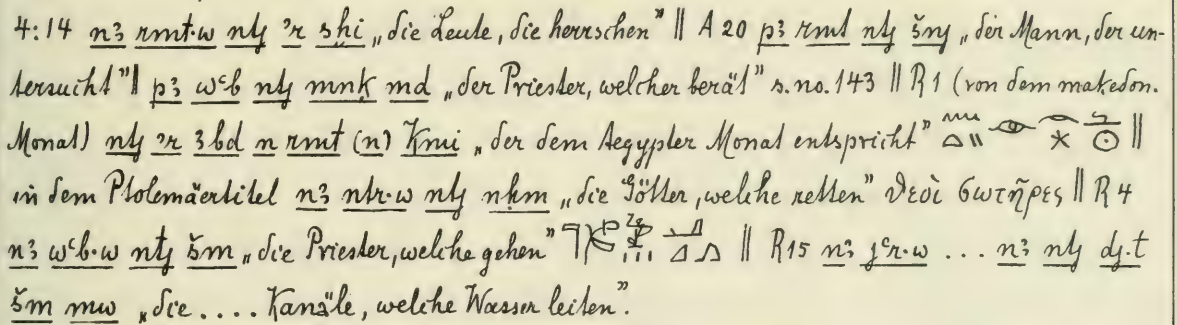 4:14 n3 rmt·w ntj ꜥr sḥi „die Leute, die herrschen” || A 20 p3 rmt ntj šnj „der Mann, der un-
tersucht” || p3 wꜥb ntj mnḳ md „der Priester, welcher berät” s. no. 143 || R 1 (von dem makedon.
Monat) ntj ꜥr 3bd n rmt (n) Kmi „der dem Aegypter Monat entspricht” ||
in dem Ptolemäertitel n3 ntr·w ntj nḥm „die Götter, welche retten” ϑεοὶ σωτῆρες || R 4
n3 wꜥb·w ntj šm „die Priester, welche gehen” || R15 n3 jꜥr·w ... n3 ntj dj·t
šm mw „die .... Kanäle, welche Wasser leiten”.